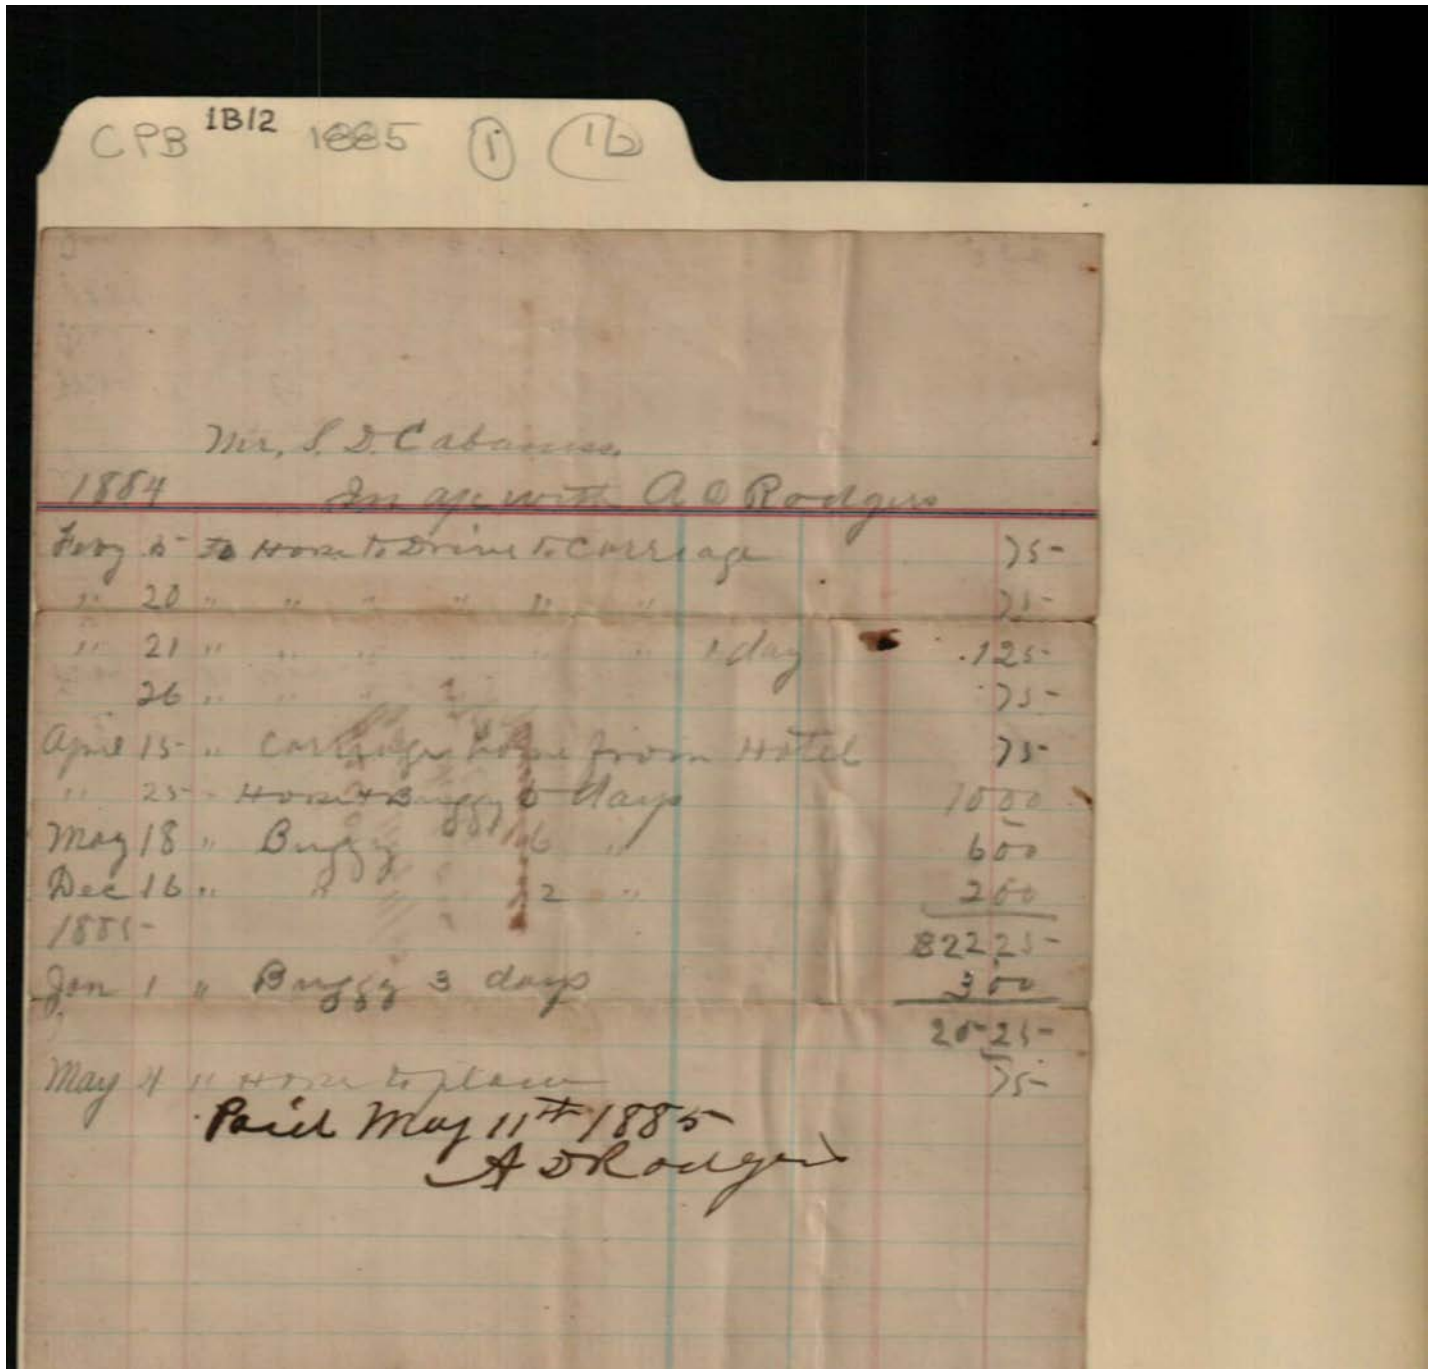 CPB 1B12 1885 1 12
Mr, S. D. Cabaniss.
1884 In a/c with A D Rodgers
Feby 5 To Horse to Drive to Carriage 75
" 20 " " " " " " 75
" 21 " " " " " " 1 day 125
26 " " " 75
April 15 " Carriage home from Hotel 75
" 25 " Horse & Buggy 5 days 1000
May 18 " Buggy 6 " 600
Dec 16 " " 2 " 200
1885 22 25
Jan 1 " Buggy 3 days 300
25 25
May 4 " Horse to 75
Paid May 11th 1885
A D Rodgers